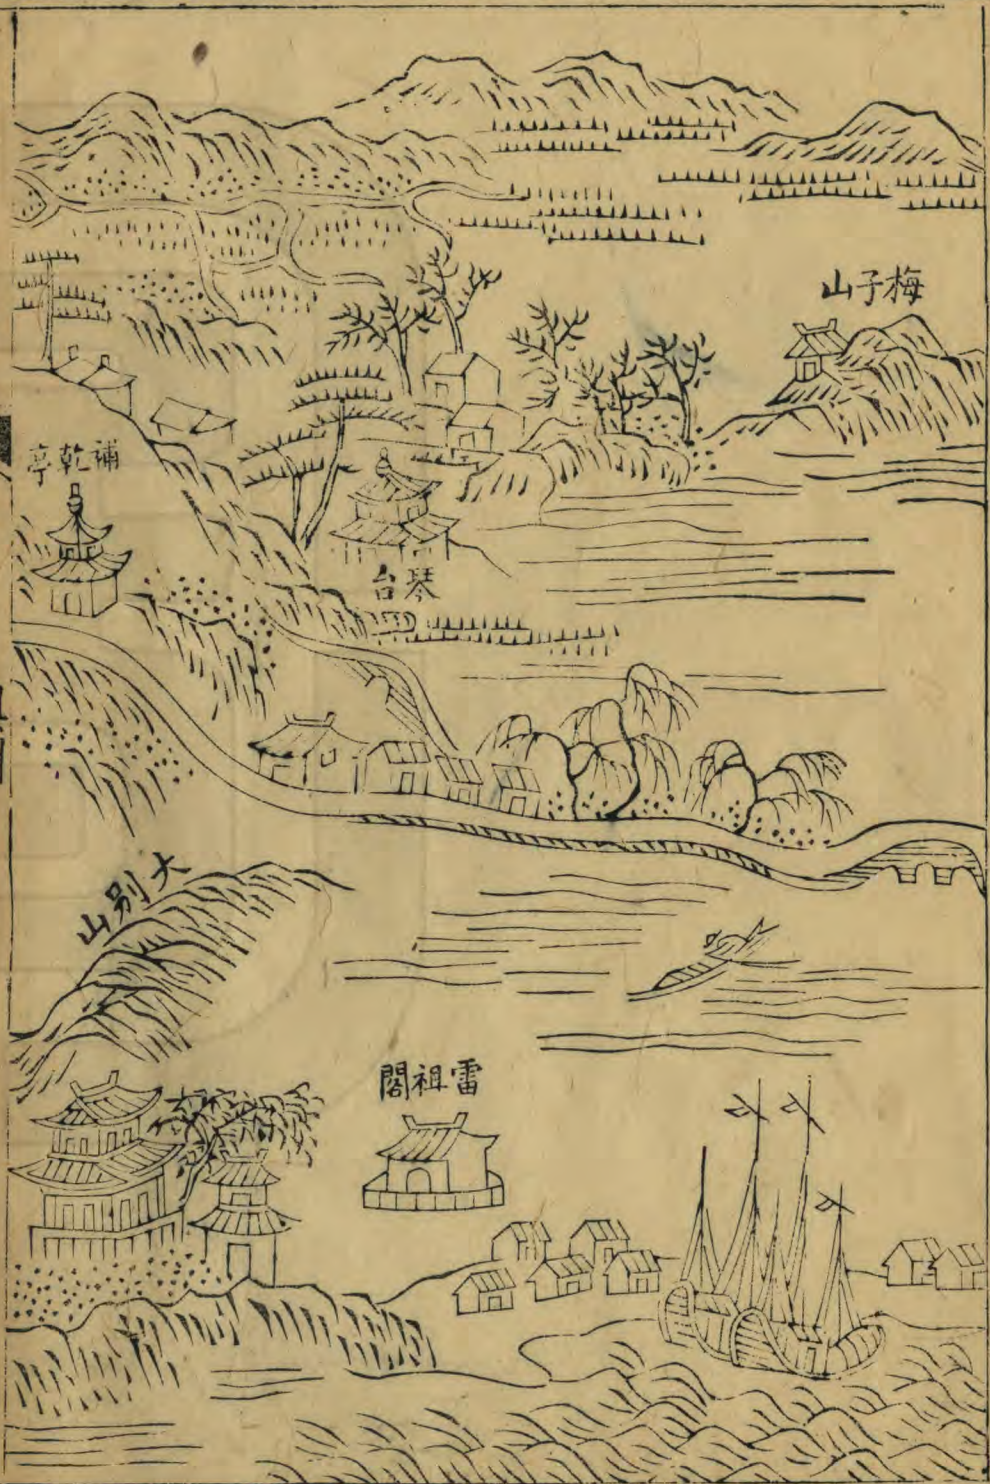 梅子山
補乾亭
琴台
大別山
雷祖閣